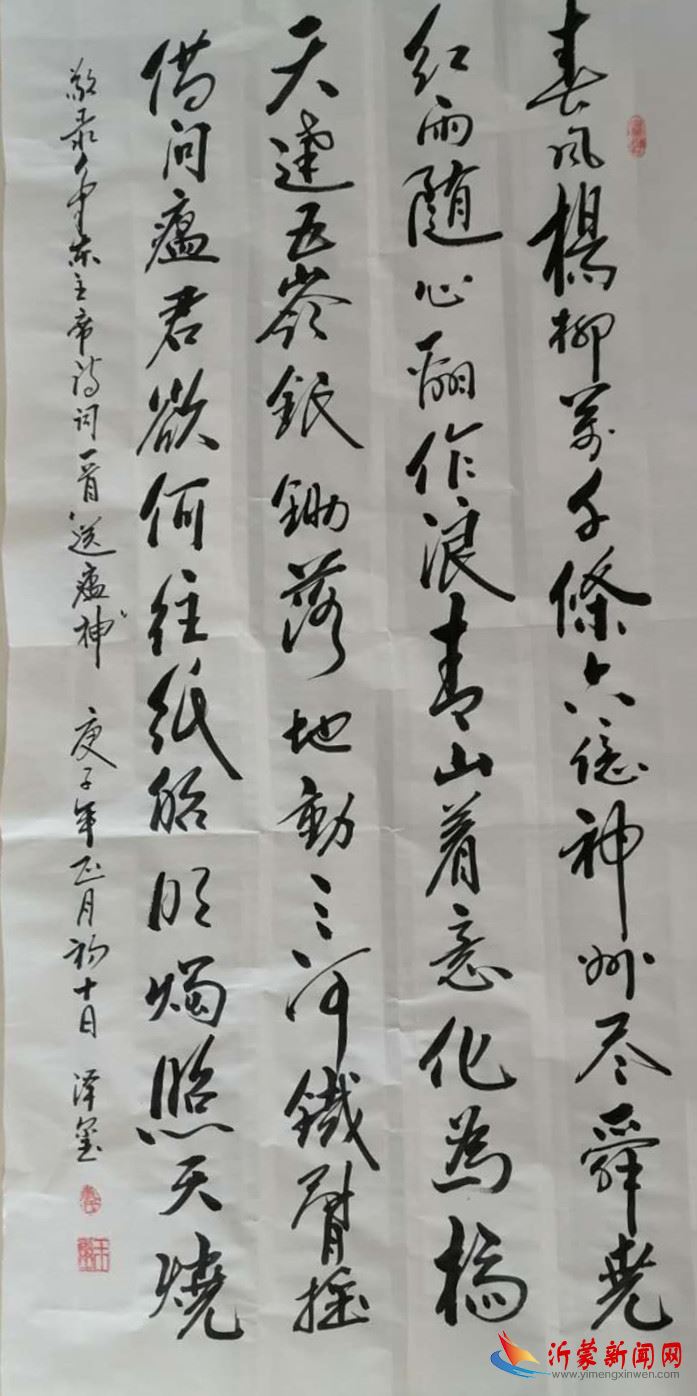 春风楊柳萬千條六億神州尽舜尭
红雨随心翻作浪青山着意化為橋
天連五嶺銀鋤落地動三河鐵臂摇
借问瘟君欲何往紙船明燭照天燒
敬录毛泽东主席诗词一首送瘟神 庚子年正月初十日 泽玺
沂蒙新闻网
www.yimengxinwen.com